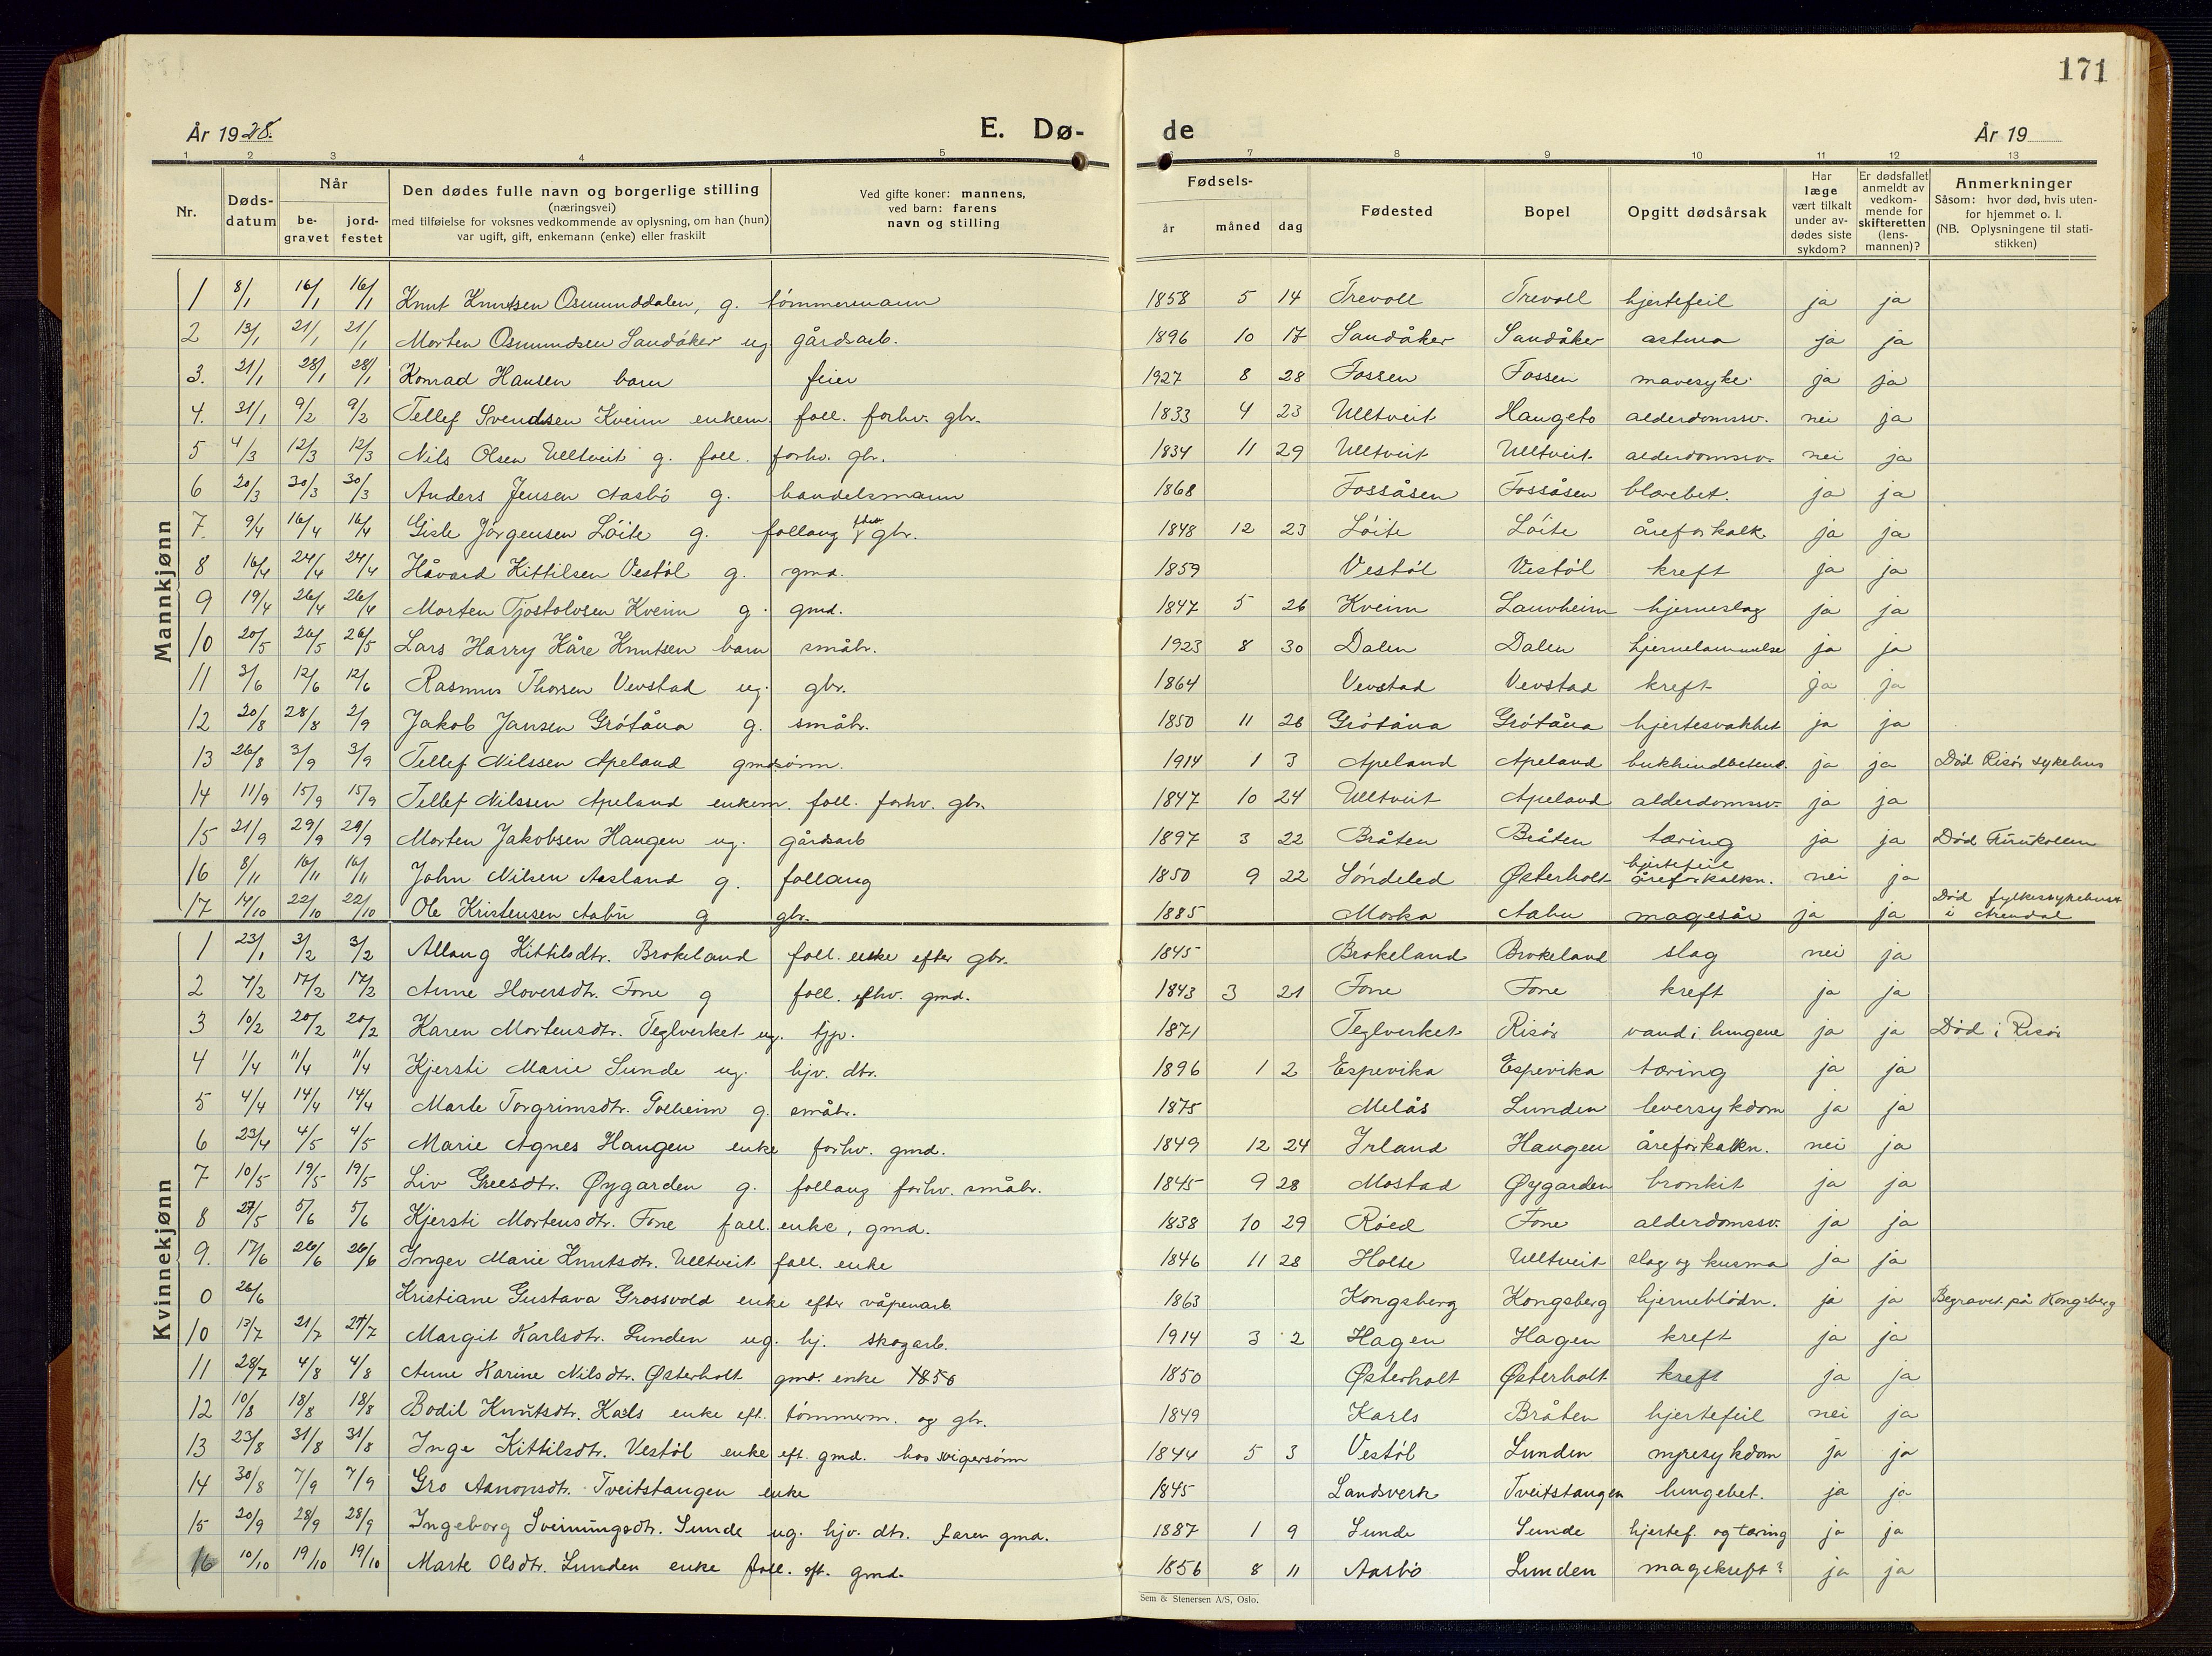 171
År 1928. E. Dø- de År 19
1 2 3 4 5 6 7 8 9 10 11 12 13
Nr. Døds-datum Når be-gravet jord-festet Den dødes fulle navn og borgerlige stilling (næringsvei) med tilføielse for voksnes vedkommende av oplysning, om han (hun) var ugift, gift, enkemann (enke) eller fraskilt Ved gifte koner: mannens, ved barn: farens navn og stilling Fødsels- år måned dag Fødested Bopel Opgitt dødsårsak Har læge vært tilkalt under av-dødes siste sykdom? Er dødsfallet anmeldt av vedkom-mende for skifteretten (lens-mannen)? Anmerkninger Såsom: hvor død, hvis uten-for hjemmet o. l. (NB. Oplysningene til stati-stikken)
Mannkjønn
1 8/1 16/1 16/1 Knut Knutsen Osmunddalen, g. tömmermann 1858 5 14 Trevoll Trevoll hjertefeil ja ja
2 13/1 21/1 21/1 Morten Osmundsen Sandåker ug gårdsarb. 1896 10 17 Sandåker Sandåker astma ja ja
3. 21/1 28/1 28/1 Konrad Hansen barn feier 1927 8 28 Fossen Fossen mavesyke ja ja
4. 31/1 9/2 9/2 Tellef Svendsen Kveim enkem. foll. forhv. gbr. 1833 4 23 Ulltveit Haugeto alderdomssv. nei ja
5 4/3 12/3 12/3 Nils Olsen Ulltveit g. foll. forhv. gbr. 1834 11 29 Ulltveit Ulltveit alderdomssv. nei ja
6 20/3 30/3 30/3 Anders Jensen Aasbö g. handelsmann 1868 Fossåsen Fossåsen blærebet. ja ja
7. 9/4 16/4 16/4 Gisle Jörgensen Löite g. follaug fhv gbr. 1848 12 23 Löite Löite åreforkalk. ja ja
8 16/4 24/4 24/4 Håvard Kittilsen Vestöl g. gmd. 1859 Vestöl Vestöl kreft ja ja
9 19/4 26/4 26/4 Morten Tjostolvsen Kveim g. gmd. 1847 5 26 Kveim Lauvheim hjerneslag ja ja
10 20/5 26/5 26/5 Lars Harry Kåre Knutsen barn småbr. 1923 8 30 Dalen Dalen hjernelammelse ja ja
11 3/6 12/6 12/6 Rasmus Thorsen Vevstad ug. gbr. 1864 Vevstad Vevstad kreft ja ja
12 20/8 28/8 2/9 Jakob Jansen Grötåna g. småbr. 1850 11 26 Grötåna Grötåna hjertesvakhet ja ja
13 26/8 3/9 3/9 Tellef Nilssen Apeland gmdsönn. 1914 1 3 Apeland Apeland bukhindbetend. ja ja Död Risör sykehus
14 11/9 15/9 15/9 Tellef Nilssen Apeland enkem. foll. forhv. gbr. 1847 10 24 Ulltveit Apeland alderdomssv. ja ja
15 21/9 29/9 29/9 Morten Jakobsen Haugen ug. gårdsarb 1897 3 22 Bråten Bråten tæring ja ja Död Furukollen
16 8/11 16/11 16/11 John Nilsen Aasland g. follaug 1850 9 22 Söndeled Østerholt hjertefeil åreforkalkn. nei ja
17 14/10 22/10 22/10 Ole Kristensen Aabu g gbr. 1885 Morka Aabu magesår ja ja Död fylkessykehuset i Arendal
Kvinnekjønn
1 23/1 3/2 3/2 Allaug Kittilsdtr. Brokeland foll. enke efter gbr. 1845 Brokeland Brokeland slag nei ja
2 7/2 17/2 17/2 Anne Hoversdtr. Fone g foll. efhv. gmd. 1843 3 21 Fone Fone kreft ja ja
3 10/2 20/2 20/2 Karen Mortensdtr. Teglverket ug. tjp. 1871 Teglverket Risör vand i lungene ja ja Död i Risör
4 1/4 11/4 11/4 Kjersti Marie Sunde ug. hjv. dtr. 1896 1 2 Espevika Espevika tæring ja ja
5 4/4 14/4 14/4 Marte Torgrimsdtr. Solheim g. småbr. 1875 Melås Lunden leversykdom ja ja
6 23/4 4/5 4/5 Marie Agnes Haugen enke forhv. gmd. 1849 12 24 Irland Haugen åreforkalkn. nei ja
7 10/5 19/5 19/5 Liv Greesdtr. Øygarden g. follaug forhv. småbr. 1845 9 28 Mostad Øygarden bronkit ja ja
8 27/5 5/6 5/6 Kjersti Mortensdtr. Fone foll. enke, gmd. 1838 10 29 Röed Fone alderdomssv. ja ja
9. 17/6 26/6 26/6 Inger Marie Knutsdtr. Ulltveit foll. enke 1846 11 28 Holte Ulltveit slag og kusma ja ja
0 26/6 Kristiane Gustava Grossvold enke efter våpenarb. 1863 Kongsberg Kongsberg hjerneblödn. ja ja Begravet på Kongsberg
10 13/7 21/7 21/7 Margit Karlsdtr. Lunden ug. hj. skogarb. 1914 3 2 Hagen Hagen kreft ja ja
11 28/7 4/8 4/8 Anne Karine Nilsdtr. Østerholt gmd. enke 1850 1850 Østerholt Østerholt kreft ja ja
12 10/8 18/8 18/8 Bodil Knutsdtr. Karls enke eft. tömmerm. og gbr. 1849 Karls Bråten hjertefeil nei ja
13 23/8 31/8 31/8 Inge Kittilsdtr. Vestöl enke eft. gmd. hos svigersönn 1844 5 3 Vestöl Lunden nyresykdom ja ja
14 30/8 7/9 7/9 Gro Aanonsdtr. Tveitstangen enke 1845 Landsverk Tveitstangen lungebet. ja ja
15 20/9 28/9 28/9 Ingeborg Sveinungsdtr. Sunde ug. hjv. dtr. faren gmd. 1887 1 9 Sunde Sunde hjertef. og tæring ja ja
16 10/10 19/10 19/10 Marte Olsdtr. Lunden enke foll. eft. gmd. 1856 8 11 Aasbö Lunden magekreft? ja ja
Sem & Stenersen A/S, Oslo.